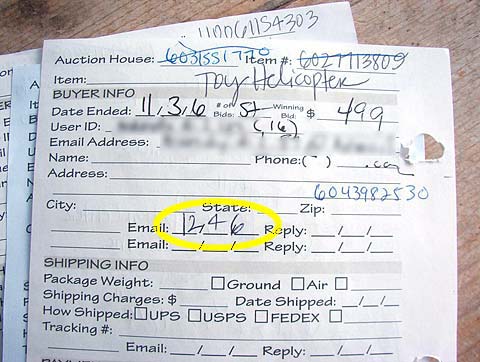 110061154303
Auction House: Item #: 6027713809
Item: Toy Helicopter
BUYER INFO
Date Ended: 11/3/6 # of Bids: Winning Bid: $ 499
User ID: (16)
Email Address:
Name: Phone:( )
Address:
6043982530
City: State: Zip:
Email: 12/4/6 Reply: _/_/_
Email: _/_/_ Reply: _/_/_
SHIPPING INFO
Package Weight: ☐Ground ☐Air ☐
Shipping Charges: $ Date Shipped: _/_/_
How Shipped: ☐UPS ☐USPS ☐FEDEX ☐
Tracking #:
Email: _/_/_ Reply: _/_/_